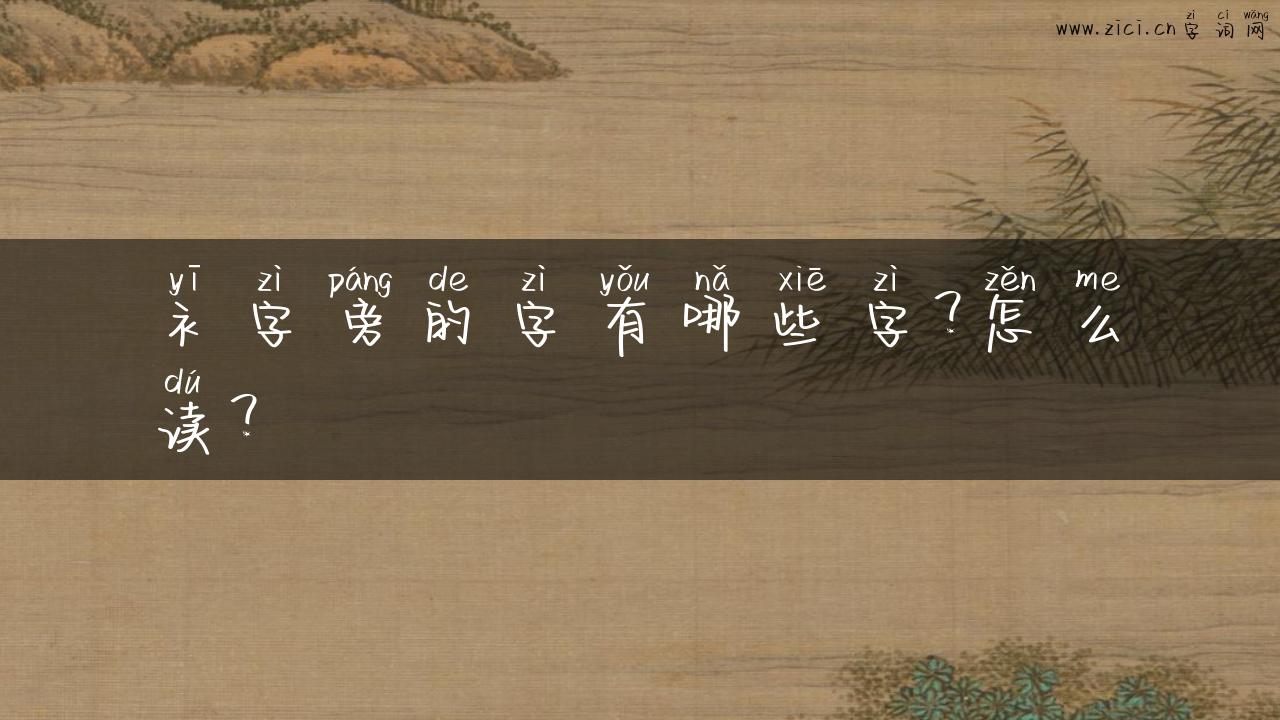 zì cí wǎng
www.zici.cn 字词网
yī zì páng de zì yǒu nǎ xiē zì zěn me
衤字旁的字有哪些字？怎么
dú
读？